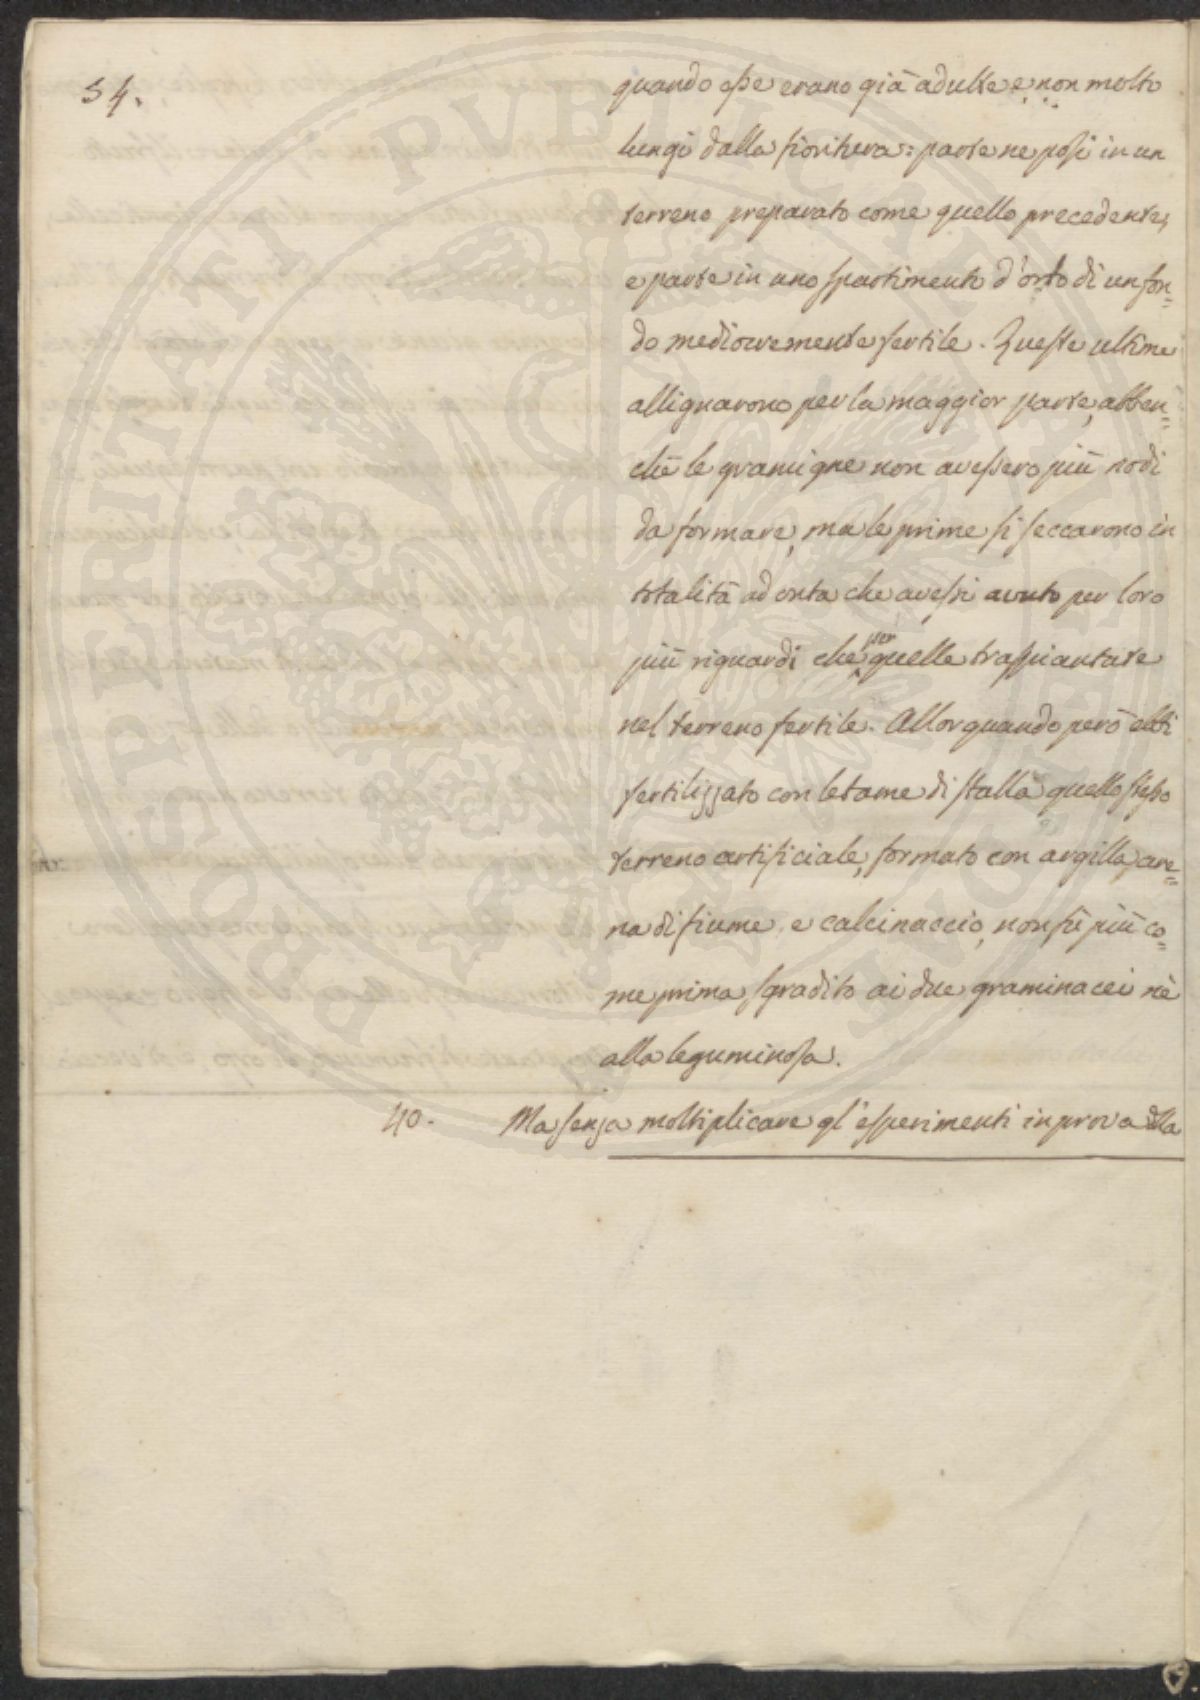 54.
quando esse erano già adulte e non molto
lungi dalla fioritura: parte ne posi in un
terreno preparato come quello precedente,
e parte in uno spartimento d'orto di un fon=
do mediocremente fertile. Queste ultime
allignarono per la maggior parte, abben=
chè le gramigne non avessero più nodi
da formare, ma le prime si seccarono in
totalità ad onta che avessi avuto per loro
più riguardi che per quelle traspiantate
nel terreno fertile. Allorquando però ebbi
fertilizzato con letame di stalla quello stesso
terreno artificiale, formato con argilla, are=
na di fiume e calcinaccio, non fù più co=
me prima sgradito ai due graminacei nè
alla leguminosa.
40. Ma senza moltiplicare gl'esperimenti in prova della
PROSPERITATI PVBLICAE AVGENDAE